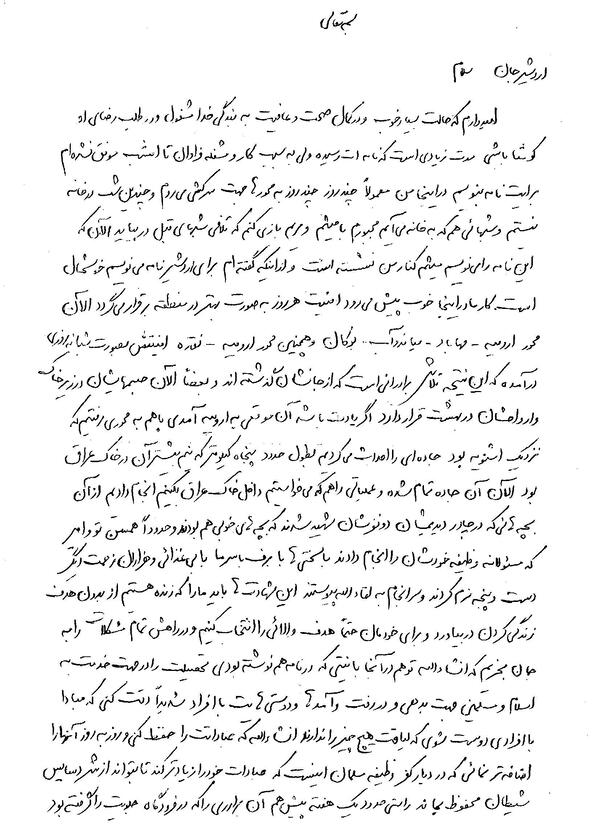 بسمه تعالی
اردشیر جان سلام
امیدوارم که حالت بسیار خوب و در کمال صحت و عافیت به بندگی خدا مشغول و در طلب رضای او
کوشا باشی مدت زیادی است که نامه ات رسیده ولی به سبب کار و مشغله فراوان تا امشب موفق نشده ام
برایت نامه بنویسم در اینجا من معمولاً چند روز چند روز به محورها جهت سرکشی می روم و چندین شب در خانه
نیستم و شبهائی هم که به خانه می آیم مجبورم با میثم و مریم بازی کنم که تلافی شبهای قبل در بیاید الآن که
این نامه را می نویسم میثم کنار من نشسته است و از اینکه گفته ام برای اردشیر نامه می نویسم خوشحال
است. کار ما در اینجا خوب پیش می رود امنیت هر روز به صورت بهتر در منطقه برقرار می گردد الآن
محور ارومیه - مهاباد - میاندوآب - بوکان و همچنین محور ارومیه - نقده امنیتش بصورت شبانه روزی
درآمده که این نتیجه تلاش برادرانی است که از جانشان گذشته اند و بعضاً الآن جسمهایشان در زیر خاک
و ارواحشان در بهشت قرار دارد اگر یادت باشد آن موقعی به ارومیه آمدی با هم به محوری رفتیم که
نزدیک اشنویه بود جاده ای را احداث می کردیم بطول حدود پنجاه کیلومتر که نیم بیشتر آن در خاک عراق
بود الآن آن جاده تمام شده و عملیاتی را هم که می خواستیم داخل خاک عراق بکنیم انجام دادیم از آن
بچه هائی که در چادر دیدیمشان دو نفرشان شهید شدند که بچه های خوبی هم بودند و حدوداً همسن تو و امیر
که مسئولانه وظیفه خودشان را انجام دادند با سختی ها با برف با سرما با بی غذائی و هزاران زحمت دیگر
دست و پنجه نرم کردند و سرانجام به لقاء الله پیوستند این شهادت ها باید ما را که زنده هستیم از بدون هدف
زندگی کردن در بیاورد و برای خودمان حتماً هدف والائی را انتخاب کنیم و در راهش تمام مشکلات را به
جان بخریم که انشاءالله تو هم در آنجا با نیتی که در نامه هم نوشته بودی تحصیلت را در جهت خدمت به
اسلام و مسلمین جهت بدهی و در رفت و آمدها و دوستی هایت با افراد شدیداً دقت کنی که مبادا
با افرادی دوست شوی که لیاقت هیچ چیز را ندارند انشاءالله که عباداتت را حفظ کنی و روز به روز آنها را
اضافه تر نمائی که در دیار کفر وظیفه مسلمان اینست که عبادات خود را زیادتر کند تا بتواند از شر دسایس
شیطان محفوظ بماند راستی حدود یک هفته پیش هم آن برادری را که در فرودگاه جلویت را گرفته بود